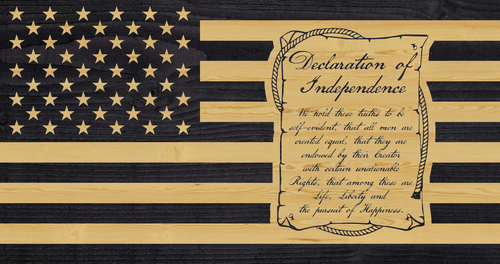 Declaration of
Independence
We hold these truths to be
self-evident, that all men are
created equal, that they are
endowed by their Creator
with certain unalienable
Rights, that among these are
Life, Liberty and
the pursuit of Happiness.